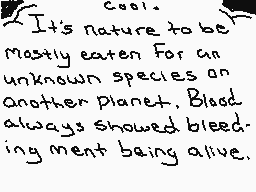 Cool.
It's nature to be
mostly eaten For an
unknown species on
another planet. Blood
always showed bleed-
ing ment being alive.